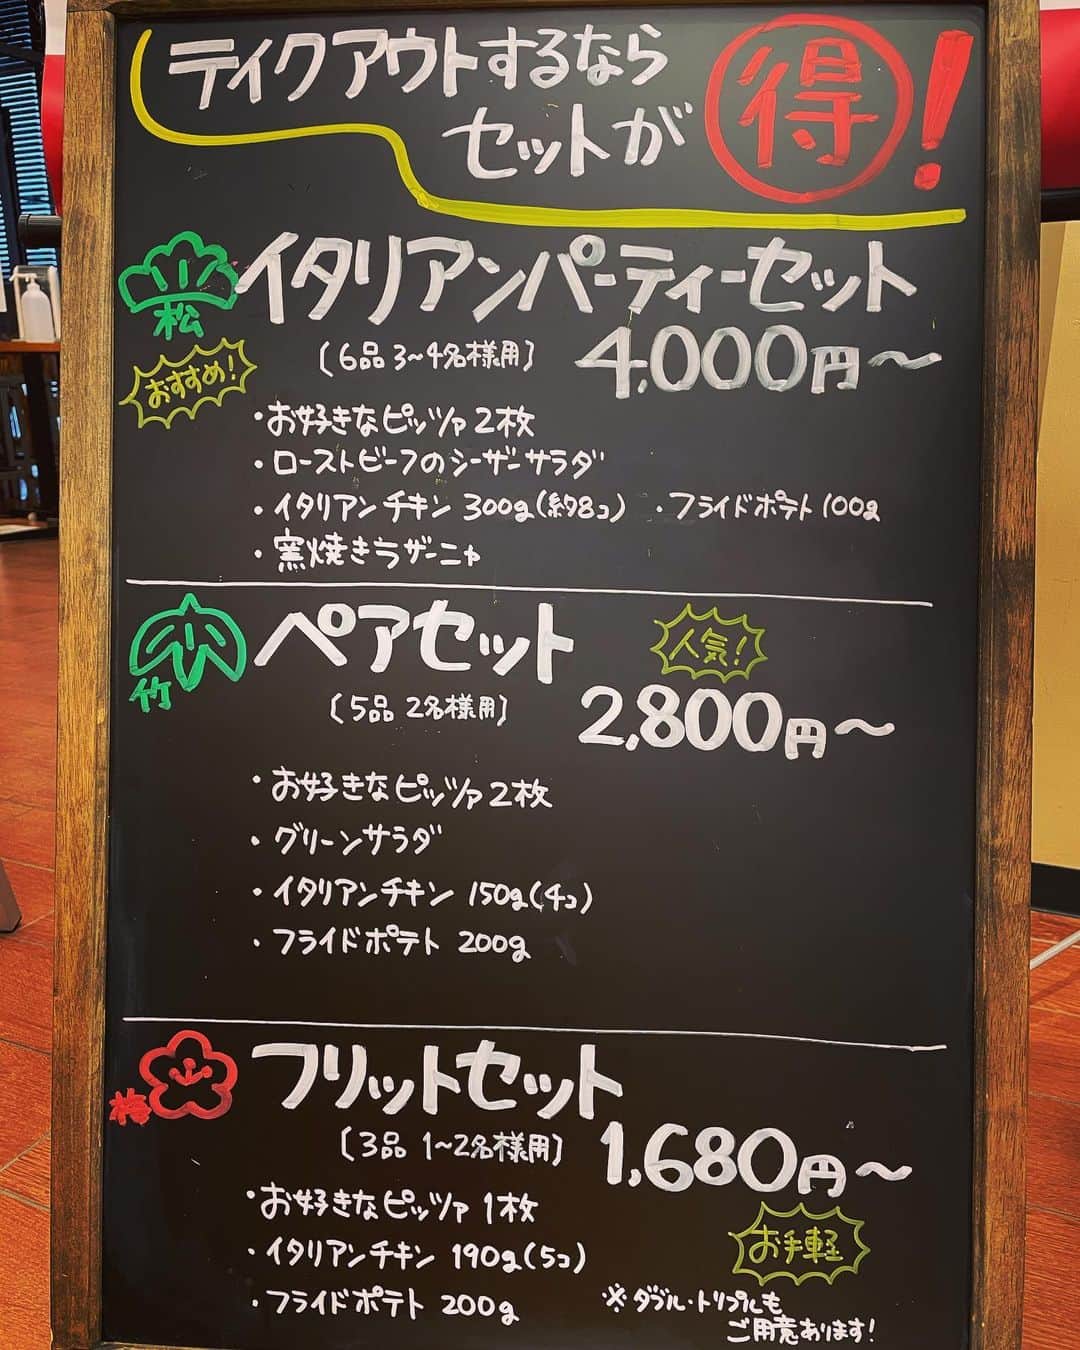 テイクアウトするなら
セットが 得!
松 イタリアンパーティーセット
おすすめ! (6品 3~4名様用) 4,000円~
・お好きなピッツァ2枚
・ローストビーフのシーザーサラダ
・イタリアンチキン 300g(約8コ) ・フライドポテト100g
・窯焼きラザーニャ
竹 ペアセット 人気!
(5品 2名様用) 2,800円~
・お好きなピッツァ2枚
・グリーンサラダ
・イタリアンチキン 150g(4コ)
・フライドポテト 200g
梅 フリットセット
(3品 1~2名様用) 1,680円~
・お好きなピッツァ 1枚
・イタリアンチキン 190g(5コ) お手軽
・フライドポテト 200g ※ダブル・トリプルも
ご用意あります!